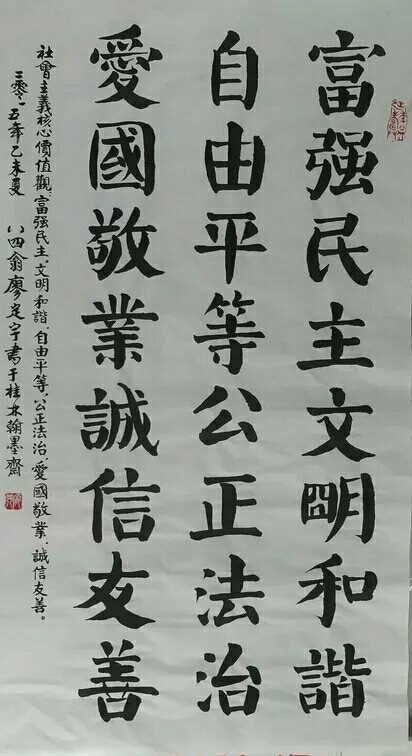 富强民主文明和諧
自由平等公正法治
愛國敬業誠信友善
社會主義核心價值觀:富强民主、文明和諧、自由平等、公正法治、愛國敬業、誠信友善。
二零一五年乙未夏 八四翁廖定宇書于桂林翰墨齋